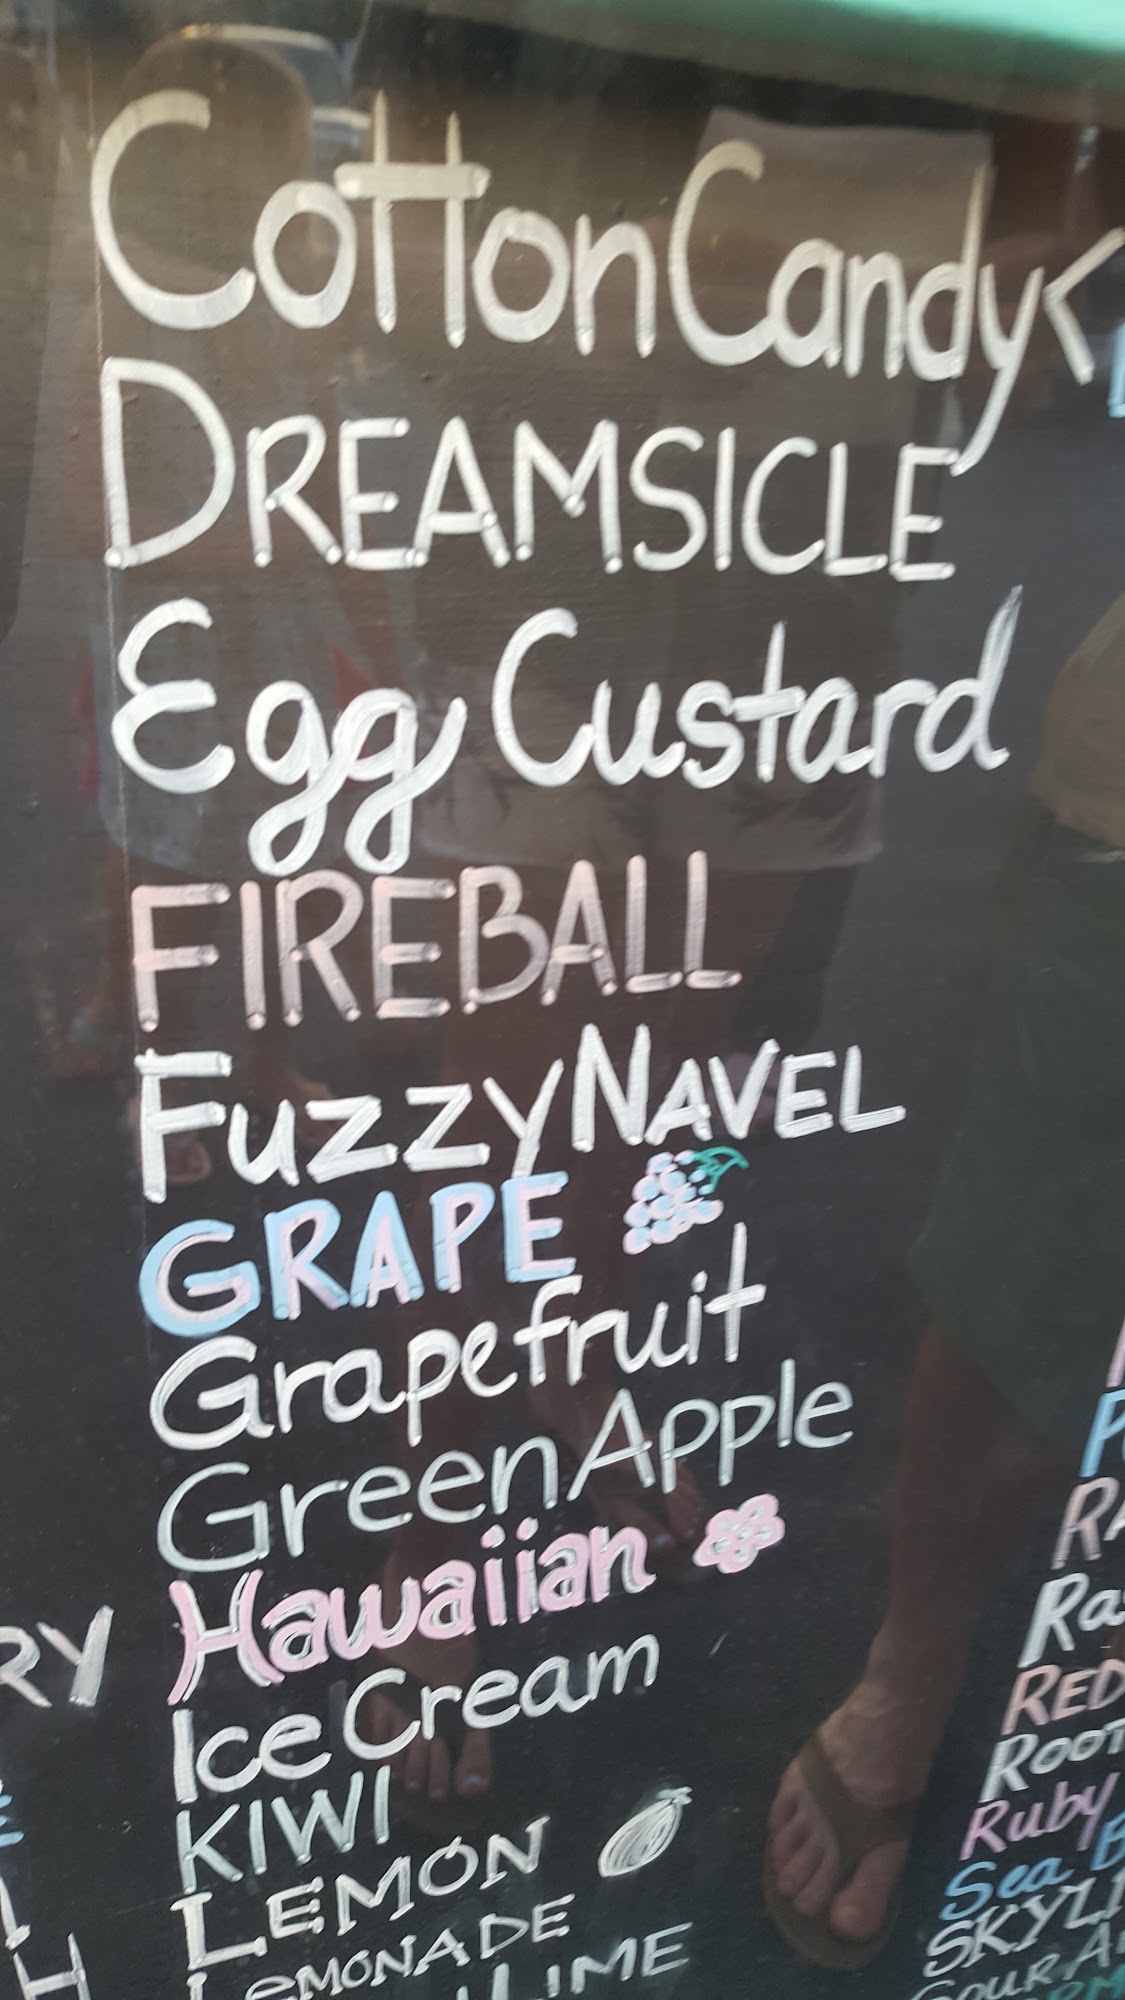 Cotton Candy
DREAMSICLE
Egg Custard
FIREBALL
Fuzzy NAVEL
GRAPE
Grapefruit
Green Apple
Hawaiian
Ice Cream
KIWI
LEMON
LEMONADE
LIME
RY
RED
ROOT
Ruby
Sea